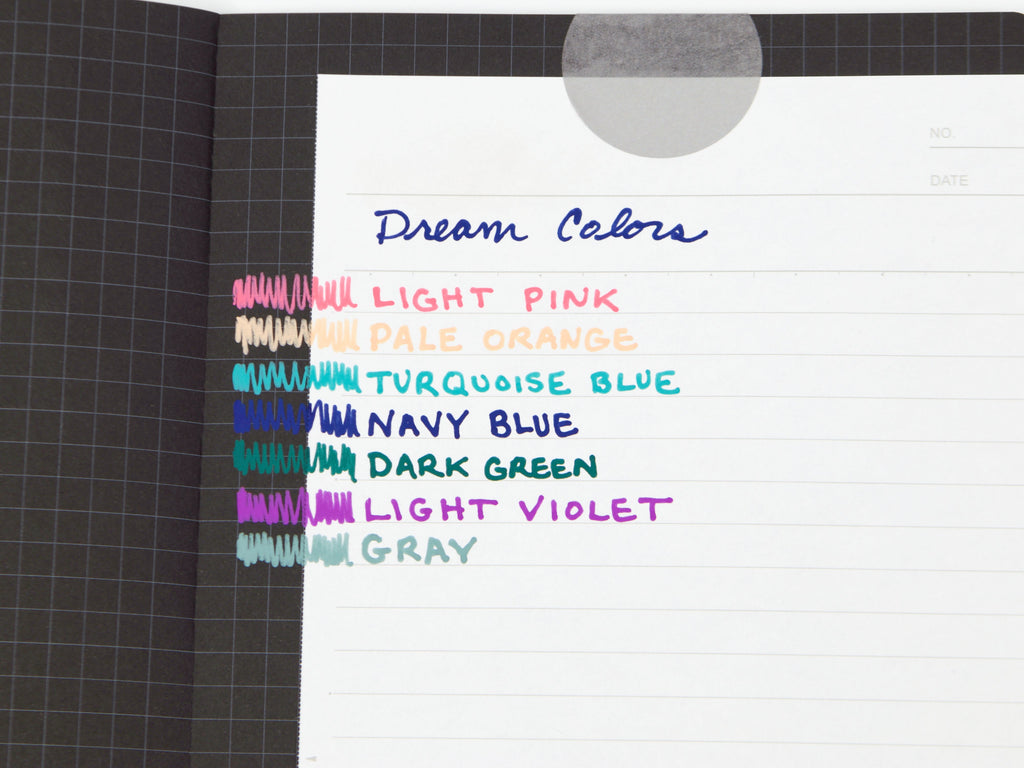 NO.
DATE
Dream Colors
LIGHT PINK
PALE ORANGE
TURQUOISE BLUE
NAVY BLUE
DARK GREEN
LIGHT VIOLET
GRAY